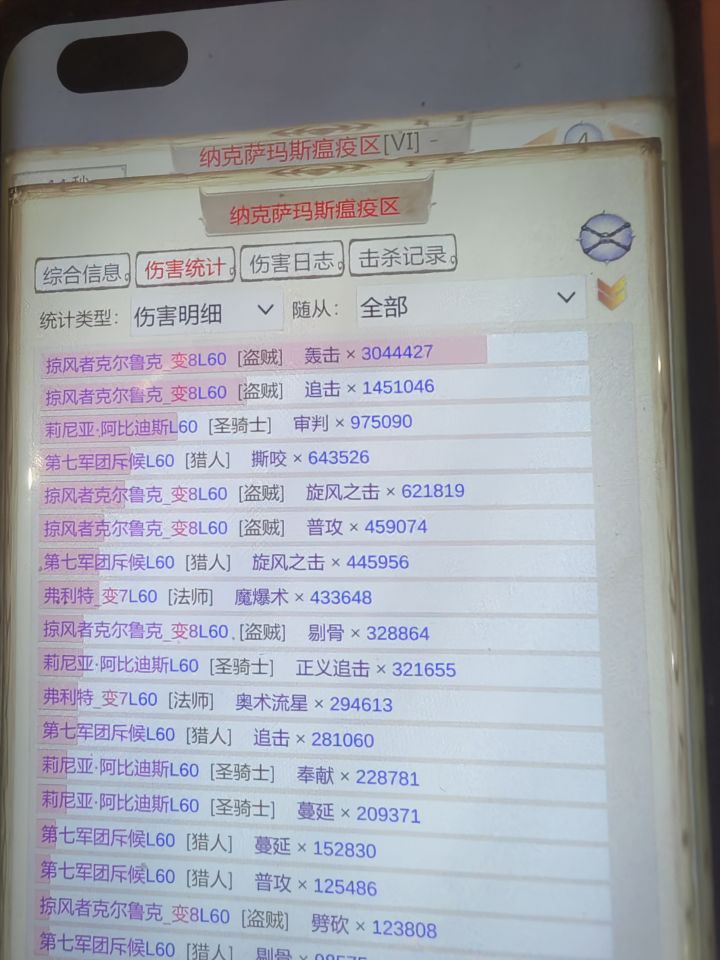 纳克萨玛斯瘟疫区[VI]
4
纳克萨玛斯瘟疫区
综合信息 伤害统计 伤害日志 击杀记录
统计类型: 伤害明细 随从: 全部
掠风者克尔鲁克_变8L60 [盗贼] 轰击 × 3044427
掠风者克尔鲁克_变8L60 [盗贼] 追击 × 1451046
莉尼亚·阿比迪斯L60 [圣骑士] 审判 × 975090
第七军团斥候L60 [猎人] 撕咬 × 643526
掠风者克尔鲁克_变8L60 [盗贼] 旋风之击 × 621819
掠风者克尔鲁克_变8L60 [盗贼] 普攻 × 459074
第七军团斥候L60 [猎人] 旋风之击 × 445956
弗利特_变7L60 [法师] 魔爆术 × 433648
掠风者克尔鲁克_变8L60 [盗贼] 剔骨 × 328864
莉尼亚·阿比迪斯L60 [圣骑士] 正义追击 × 321655
弗利特_变7L60 [法师] 奥术流星 × 294613
第七军团斥候L60 [猎人] 追击 × 281060
莉尼亚·阿比迪斯L60 [圣骑士] 奉献 × 228781
莉尼亚·阿比迪斯L60 [圣骑士] 蔓延 × 209371
第七军团斥候L60 [猎人] 蔓延 × 152830
第七军团斥候L60 [猎人] 普攻 × 125486
掠风者克尔鲁克_变8L60 [盗贼] 劈砍 × 123808
第七军团斥候L60 [猎人] 剔骨 ×